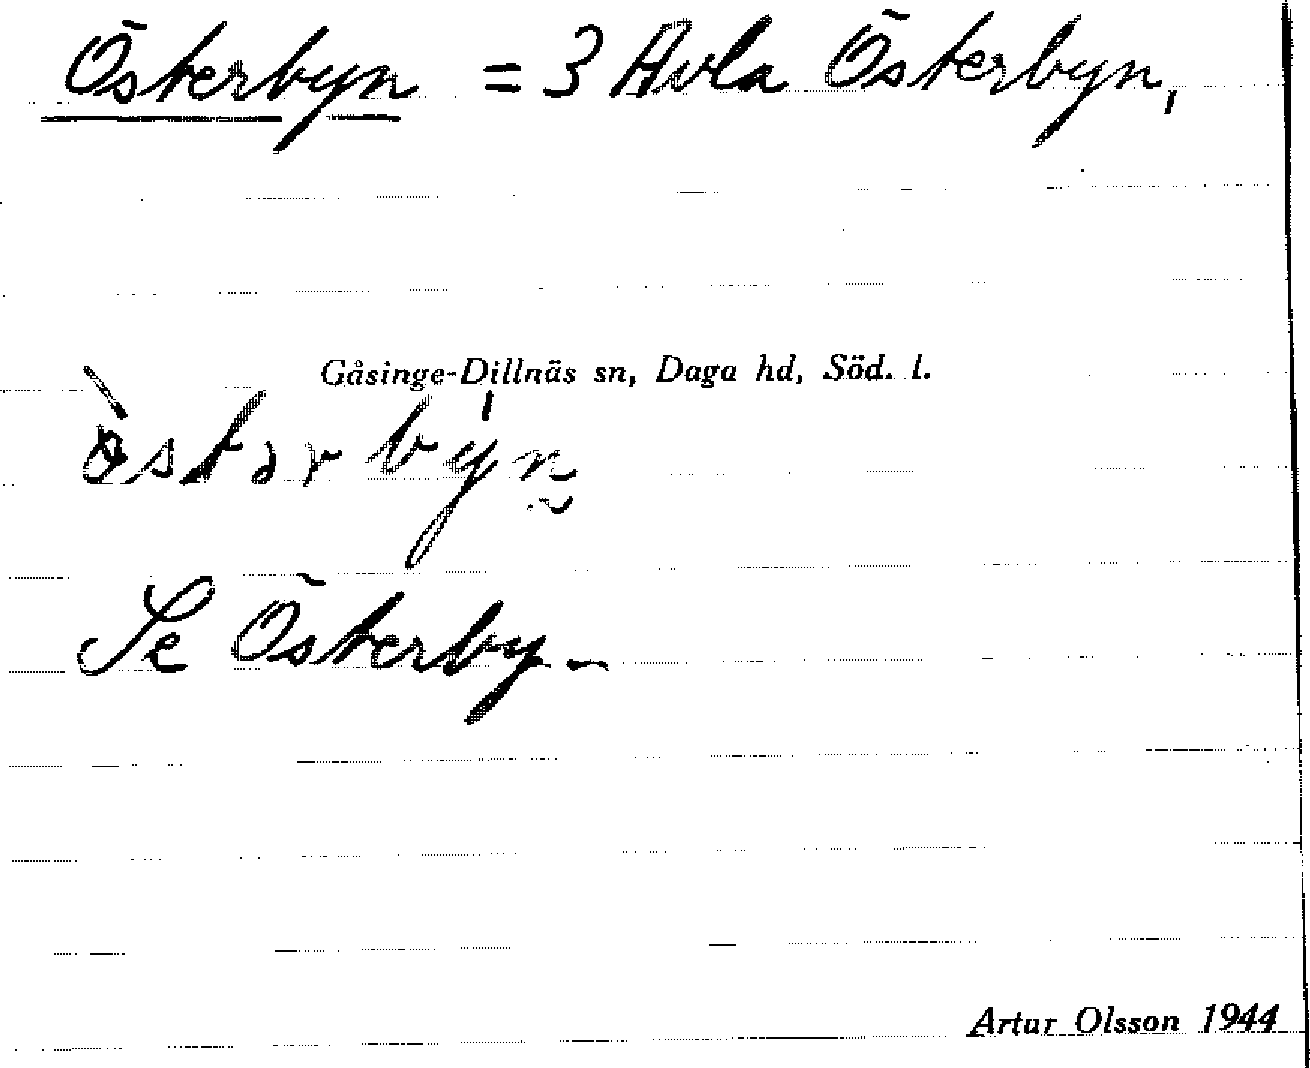 Österbyn = 3 Avla Österbyn,
Gåsinge-Dillnäs sn, Daga hd, Söd. l.
ò̀stərbýn̰
Se Österby. –
Artur Olsson 1944